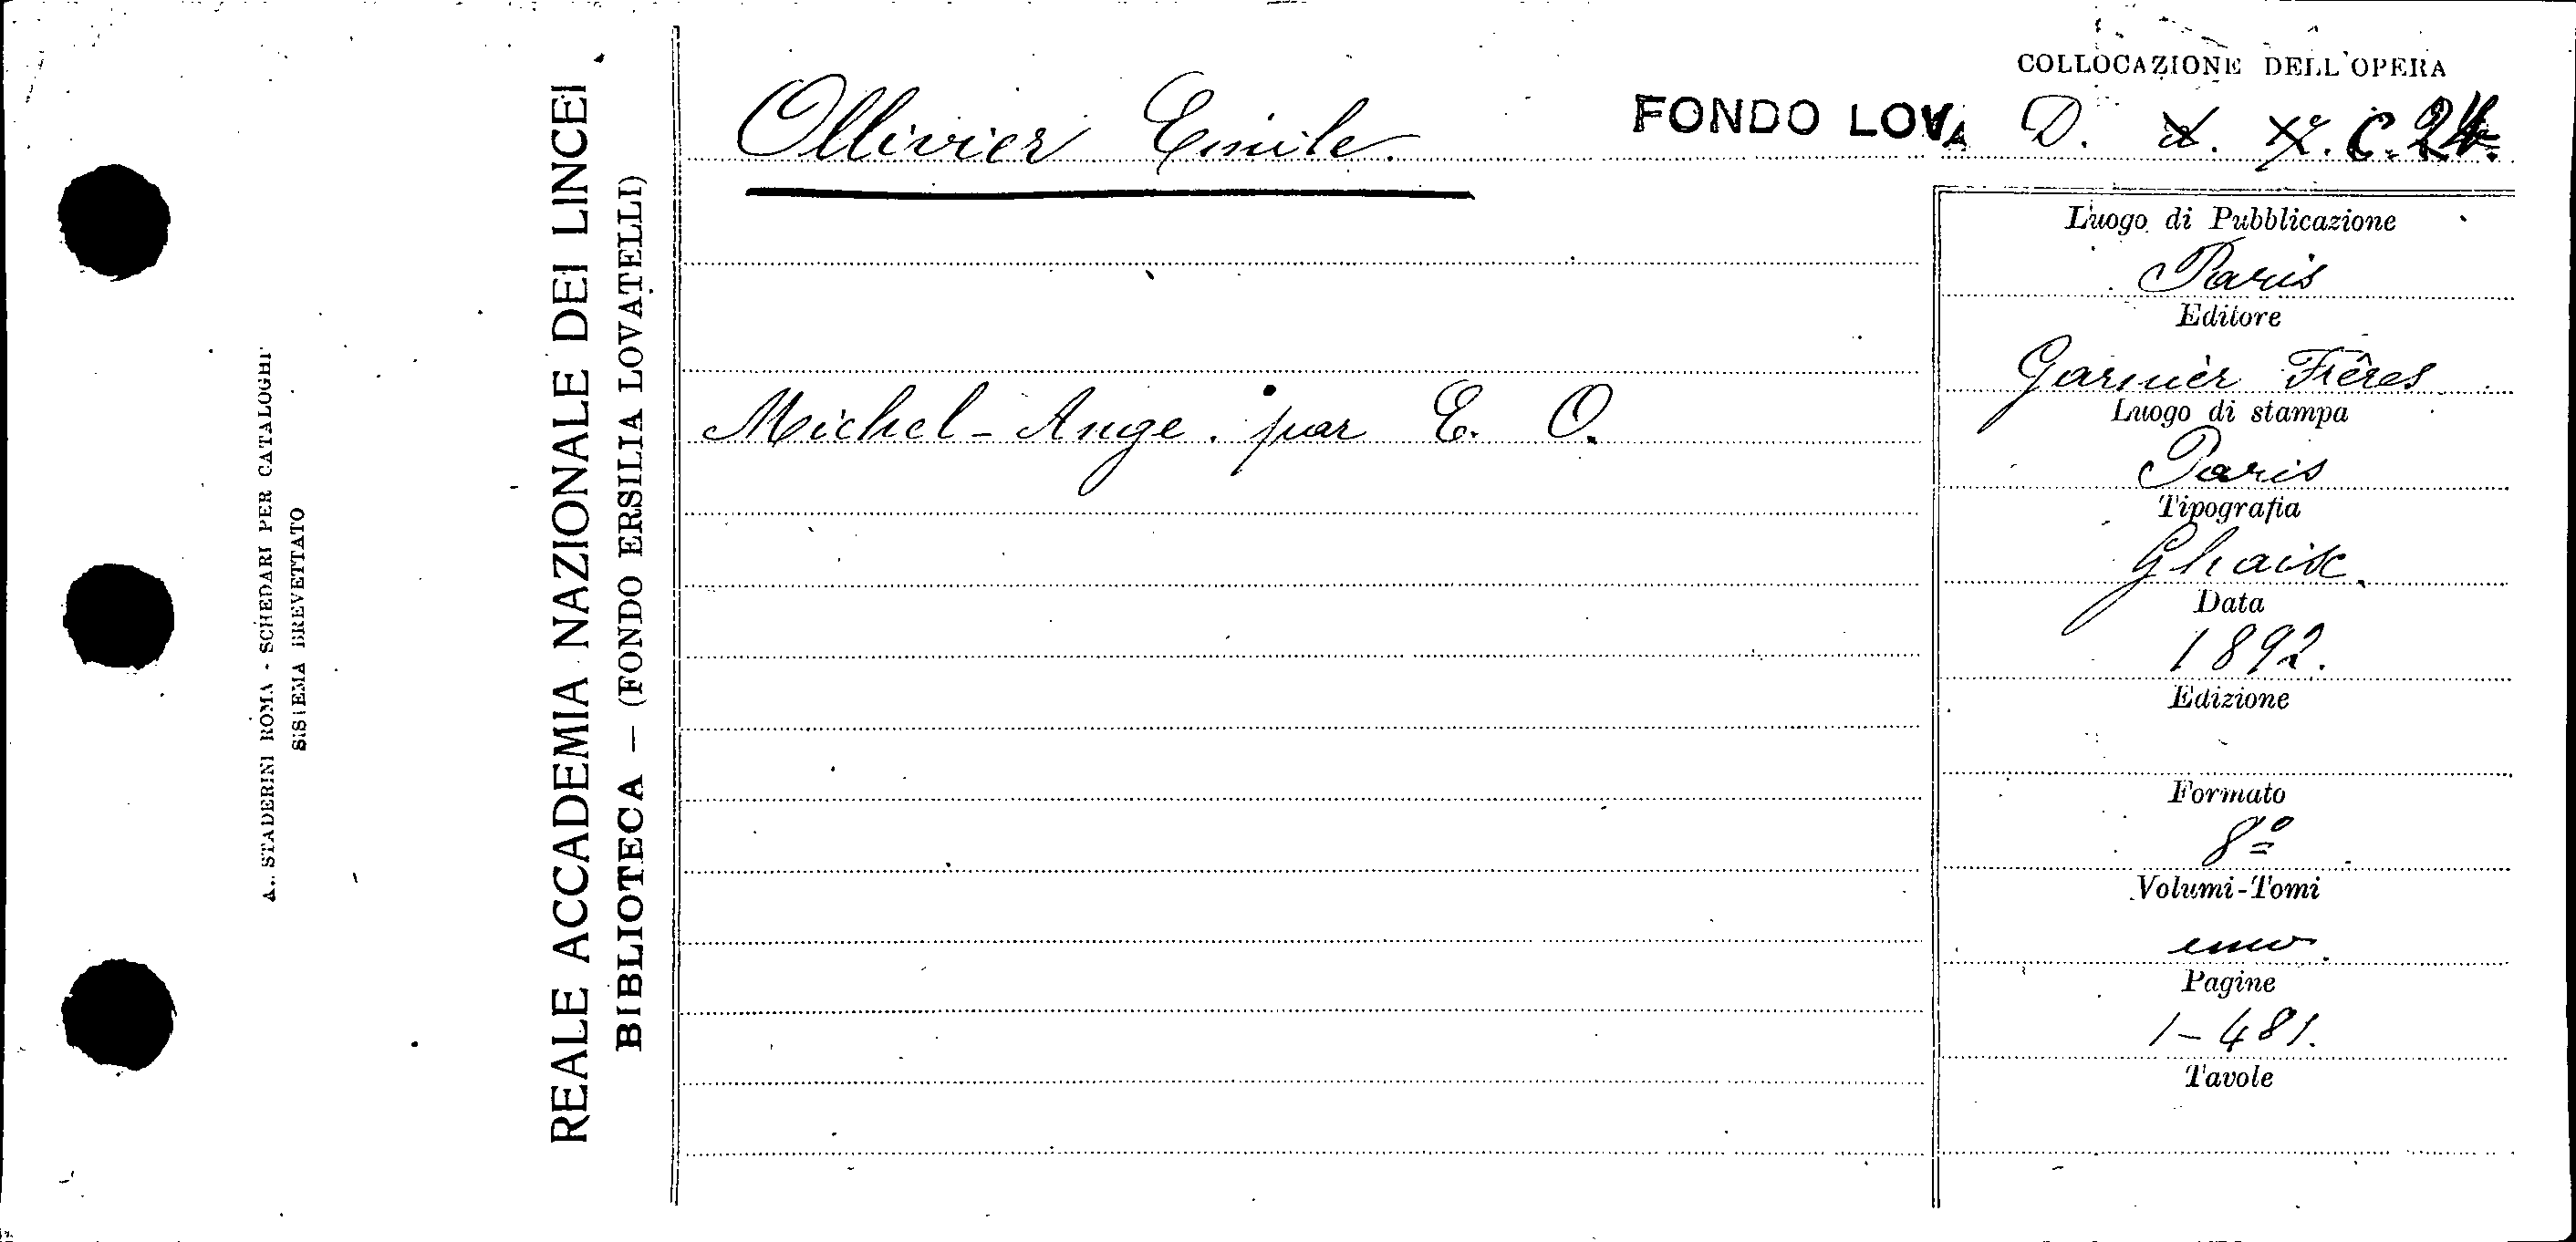 A. STADERINI ROMA - SCHEDARI PER CATALOGHI
SISTEMA BREVETTATO
REALE ACCADEMIA NAZIONALE DEI LINCEI
BIBLIOTECA — (FONDO ERSILIA LOVATELLI)
Ollivier Emile.
FONDO LOVA
COLLOCAZIONE DELL'OPERA
D. C. 24.
Michel-Ange. par E. O.
Luogo di Pubblicazione
Paris
Editore
Garnier Frêres
Luogo di stampa
Paris
Tipografia
Ghaix.
Data
1892.
Edizione
Formato
8º
Volumi-Tomi
uno.
Pagine
1-481.
Tavole